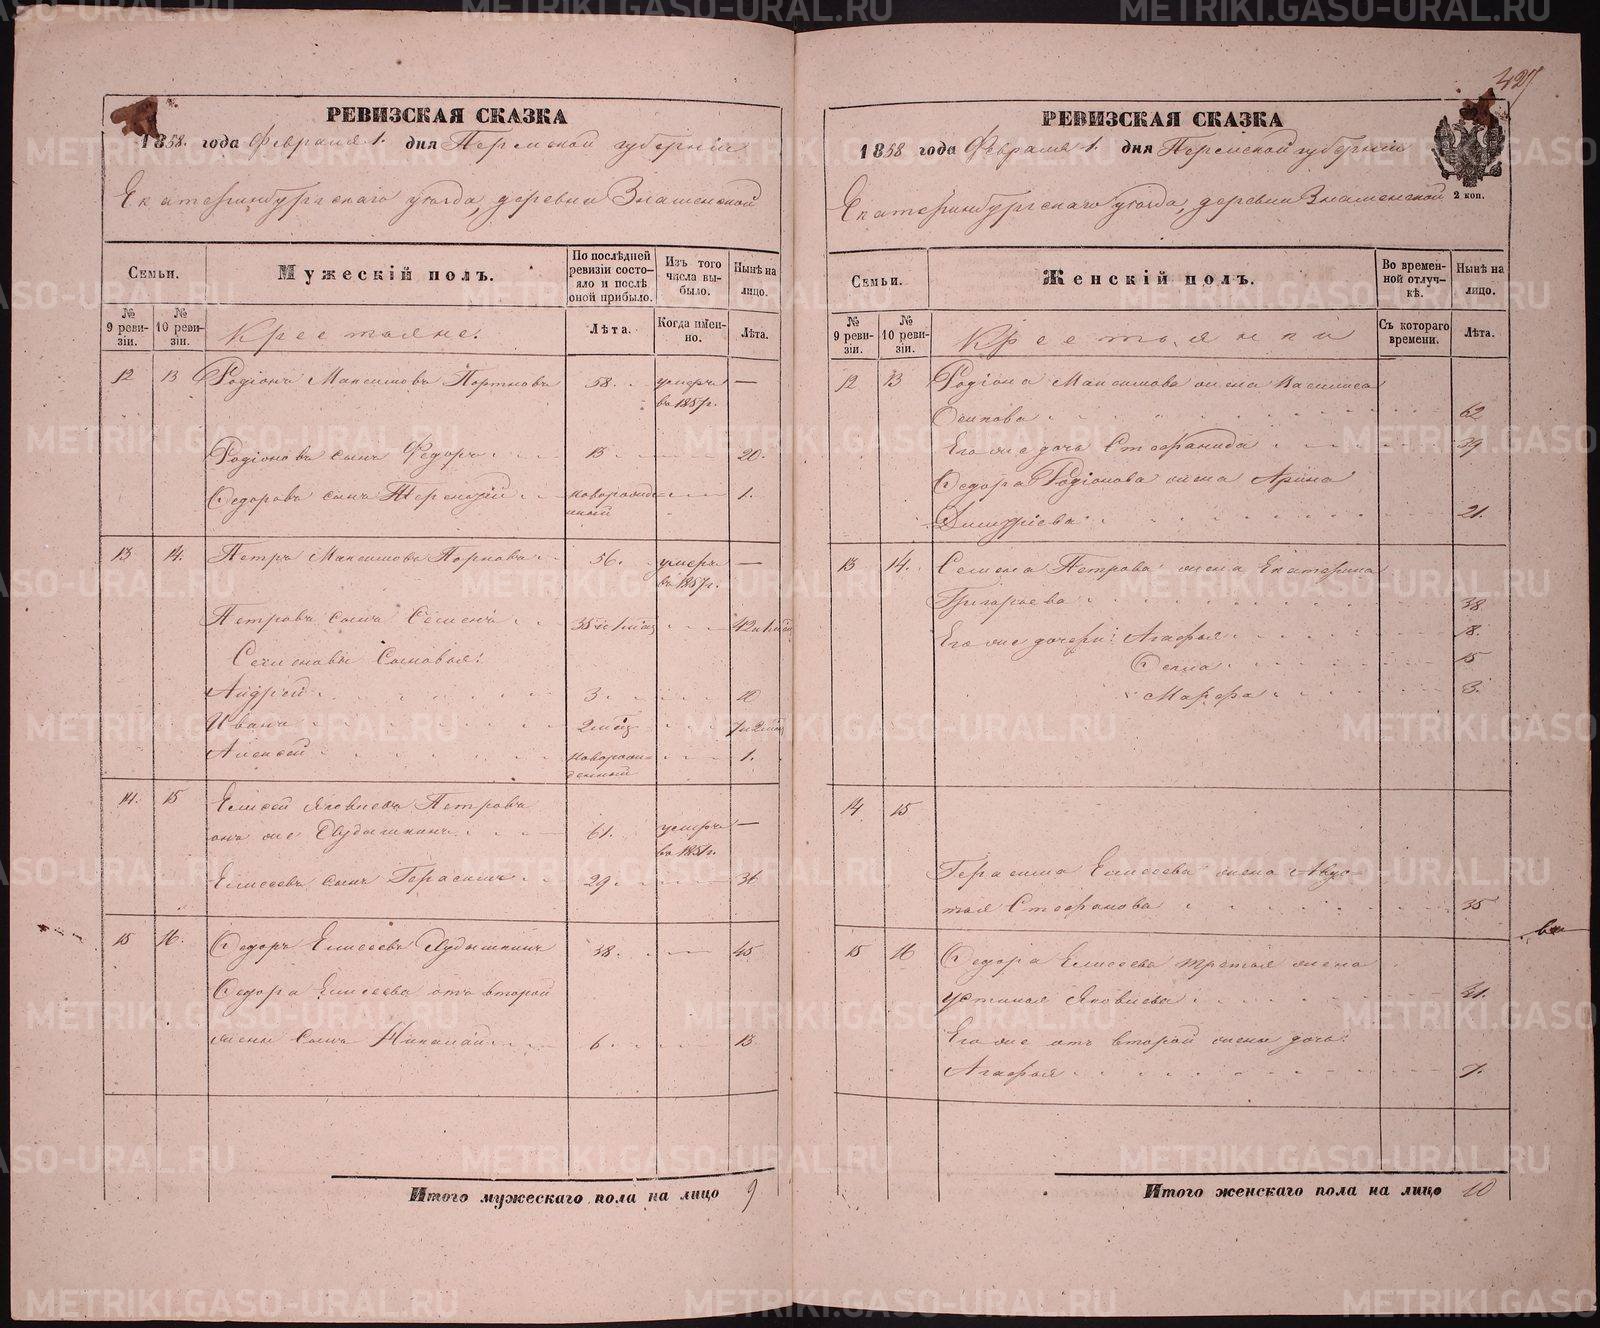 427
РЕВИЗСКАЯ СКАЗКА
1858. года Февраля 1. дня Пермской губерніи
Екатеринбургскаго уѣзда, деревни Знаменской
Семьи.
Мужескій полъ.
По послѣдней ревизіи состояло и послѣ оной прибыло.
Изъ того числа выбыло.
Нынѣ на лицо.
№ 9 ревизіи.
№ 10 ревизіи.
Крестьяне:
Лѣта.
Когда именно.
Лѣта.
12 13 Родіонъ Максимовъ Портновъ 58. умеръ —
въ 1857 г.
Родіоновъ сынъ Федоръ 13 20.
Федоровъ сынъ Терентій новорожденный 1.
13 14. Петръ Максимовъ 56. умеръ —
въ 1857 г.
Петровъ сынъ Семенъ
Семеновы сыновья:
Андрей 3. 10
Иванъ
Алексей новорожденный 1.
14. 15 Елисей Яковлевъ Петровъ
онъ же 61. умеръ —
въ 1851 г.
Елисеевъ сынъ Герасимъ 29. 36
15 16. Федоръ Елисеевъ 38. 45
Федора Елисеева отъ второй
жены сынъ Николай 6. 13
Итого мужескаго пола на лицо 9
РЕВИЗСКАЯ СКАЗКА
1858 года Февраля 1. дня Пермской губерніи
Екатеринбургскаго уѣзда, деревни Знаменской
2 коп.
Семьи.
Женскій полъ.
Во временной отлучкѣ.
Нынѣ на лицо.
№ 9 ревизіи.
№ 10 ревизіи.
Крестьянки
Съ котораго времени.
Лѣта.
12 13 Родіона Максимова жена Василиса
Осипова 62
Его же дочь Стефанида 39
Федора Родіонова жена Арина
Димитріева 21.
13 14. Семена Петрова жена Екатерина
Григорьева 38
Его же дочери: Агафья 18.
15
Марфа 3.
14 15
Герасима Елисеева жена Авдотья Стефанова 35
15 16 Федора Елисеева третья жена
Устинья Яковлева 41.
Его же отъ второй жены дочь:
Агафья 7.
Итого женскаго пола на лицо 10
METRIKI.GASO-URAL.RU